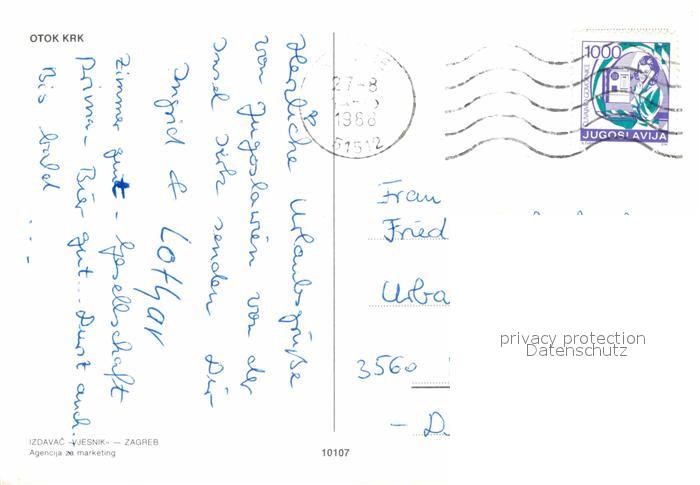 OTOK KRK
Herzliche Urlaubsgrüße
von Jugoslawien von der
Insel Krk senden Dir
Ingrid & Lothar
Zimmer gut - Gesellschaft
prima - Bier gut... Durst auch.
Bis bald ...
IZDAVAČ »VJESNIK« — ZAGREB
Agencija za marketing
10107
27-8
1988
51512
1000
JUGOSLAVIJA
Frau
Fried
Urba
3560
- D.
privacy protection
Datenschutz